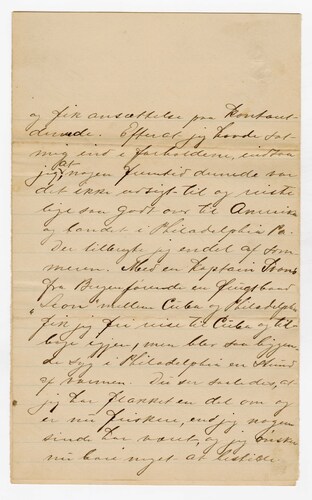 og fik ansættelse paa Kontoret
dernede. Efterat jeg havde sat
mig ind i forholdene, indsaa
jeg at nogen fremtid dernede var
det ikke udsigt til og reiste
lige saa godt over til Amerika
og landet i Philadelphia Pa.
Der tilbragte jeg endel af som-
meren. Med en Kaptain
fra Bergen førende en
som mellem Cuba og Philadelphia
fik jeg fri reise til Cuba og til-
bage igjen, men blev saa liggen-
de syg i Philadelphia en
af varmen. Du ser saaledes, at
jeg har flakket en del om og
er nu friskere, end jeg nogen
sinde har været, og jeg ønsker
nu bare noget at bestille